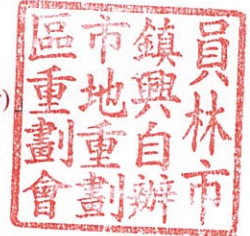 員林市
鎮興自辦
市地重劃
區重劃會
)